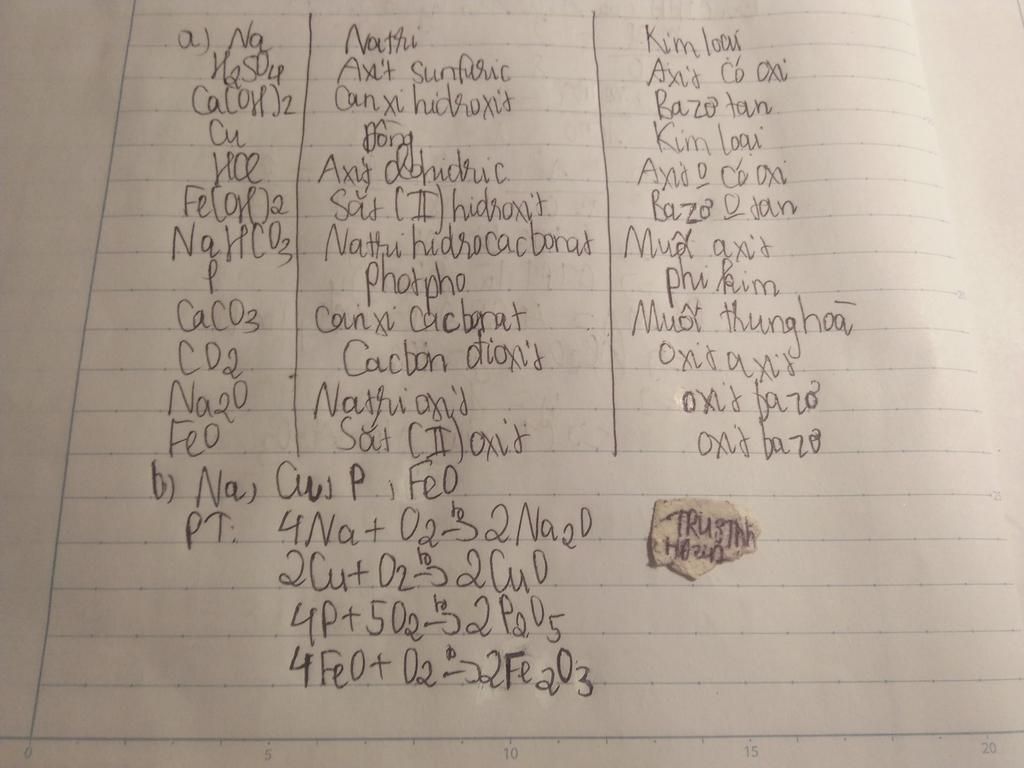 a) Na Natri Kim loại
H2SO4 Axit sunfuric Axit có oxi
Ca(OH)2 Canxi hidroxit Bazơ tan
Cu Đồng Kim loại
HCl Axit clohidric Axit 0 có oxi
Fe(OH)2 Sắt (II) hidroxit Bazơ 0 tan
NaHCO3 Natri hidrocacbonat Muối axit
P photpho phi kim
CaCO3 canxi cacbonat Muối trung hoà
CO2 Cacbon đioxit oxit axit
Na2O Natri oxit oxit bazơ
FeO Sắt (II) oxit oxit bazơ
b) Na, Cu, P, FeO
PT: 4Na + O2 to→ 2Na2O
2Cu + O2 to→ 2CuO
4P + 5O2 to→ 2P2O5
4FeO + O2 to→ 2Fe2O3
0 5 10 15 20